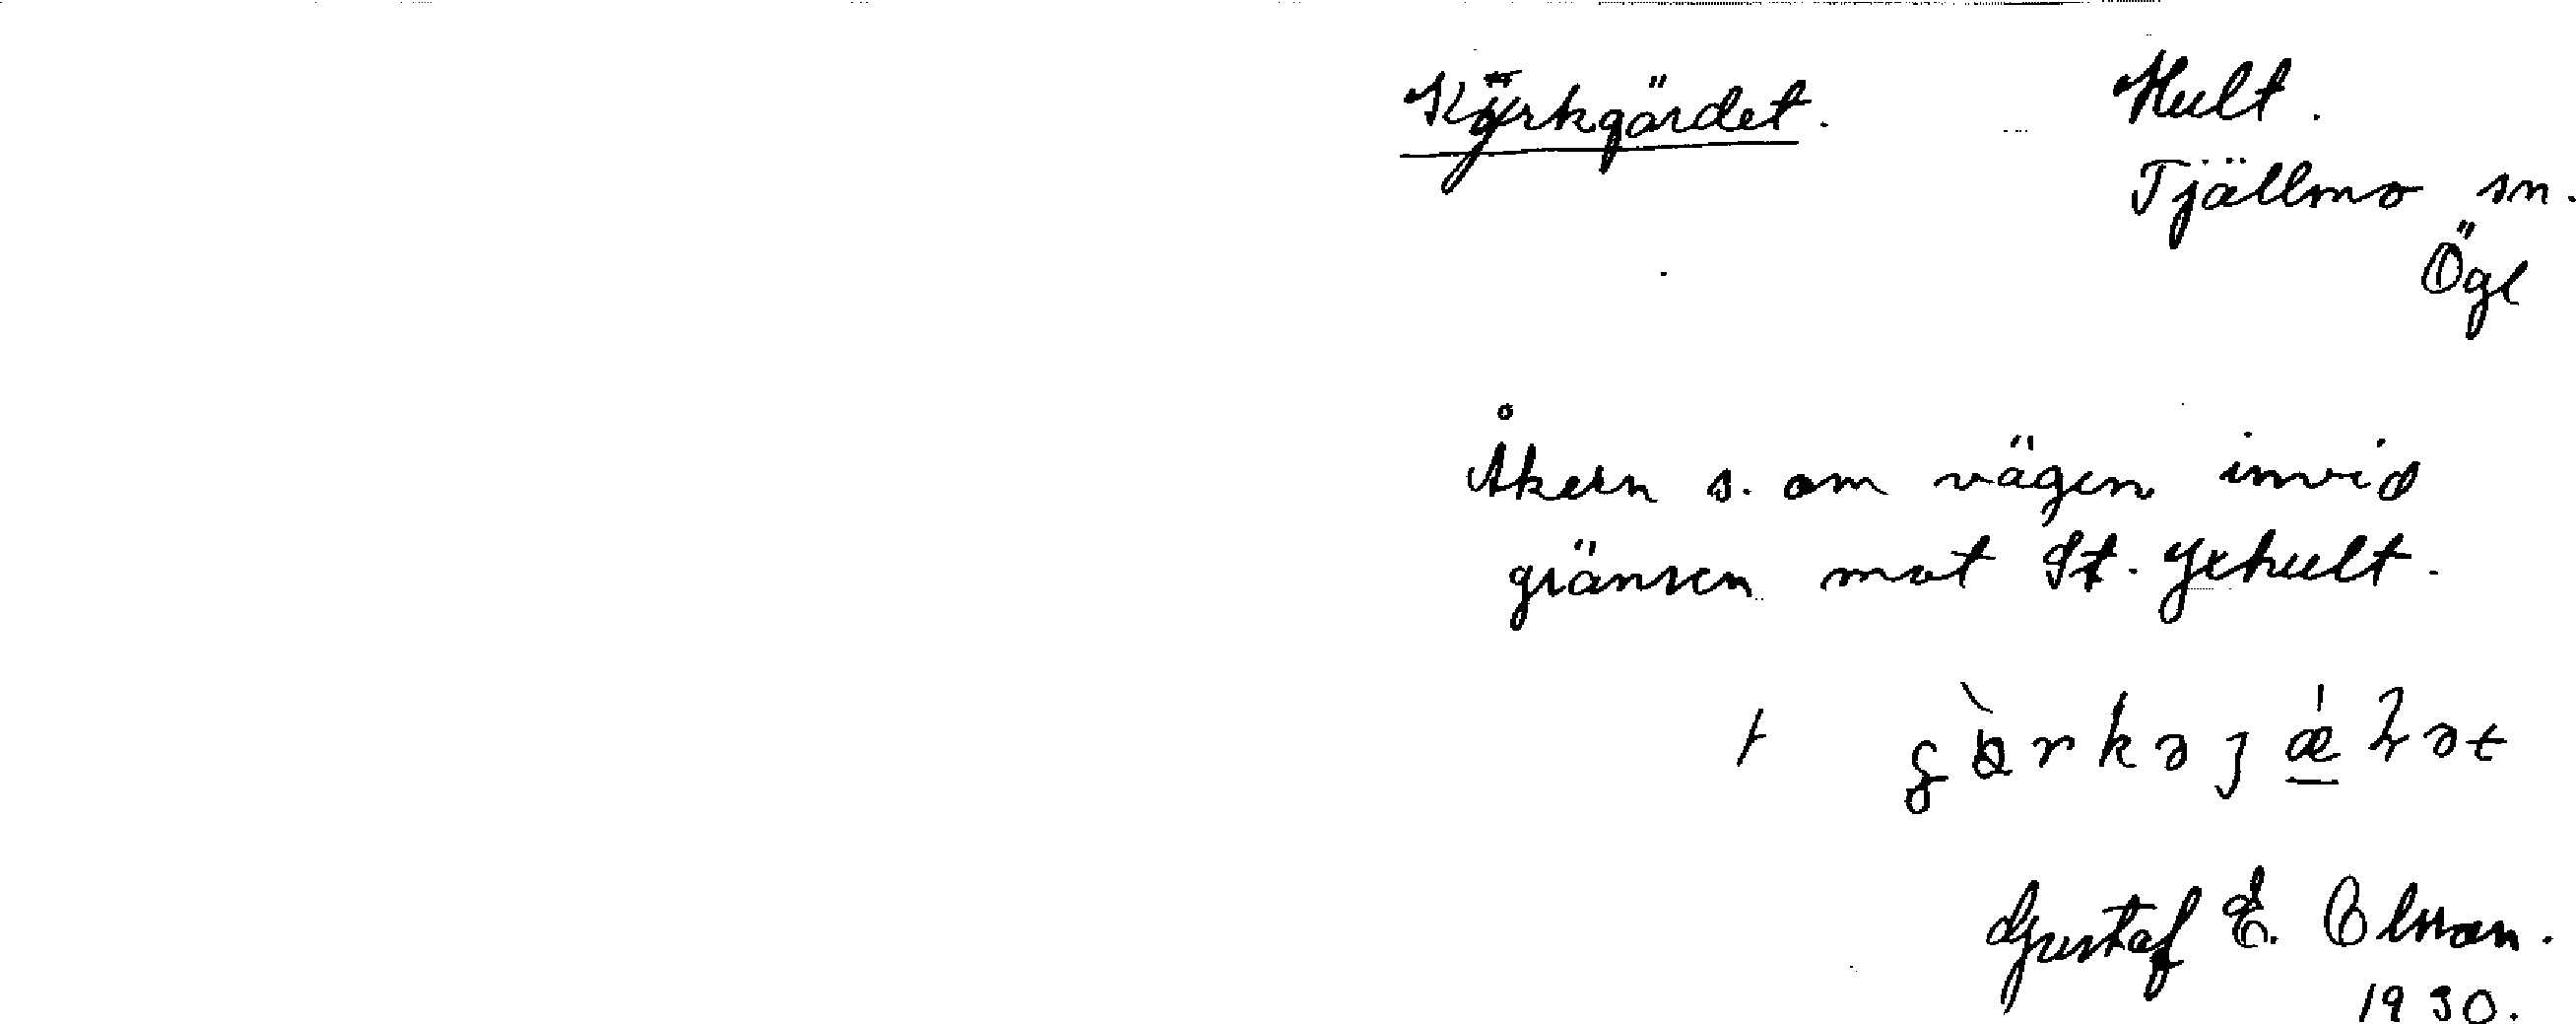 Kyrkgärdet. Hult.
Tjällmo sn.
Ögl
Åkern s. om vägen invid
gränsen mot St. Yxhult.
Gustaf E. Olsson.
1930.